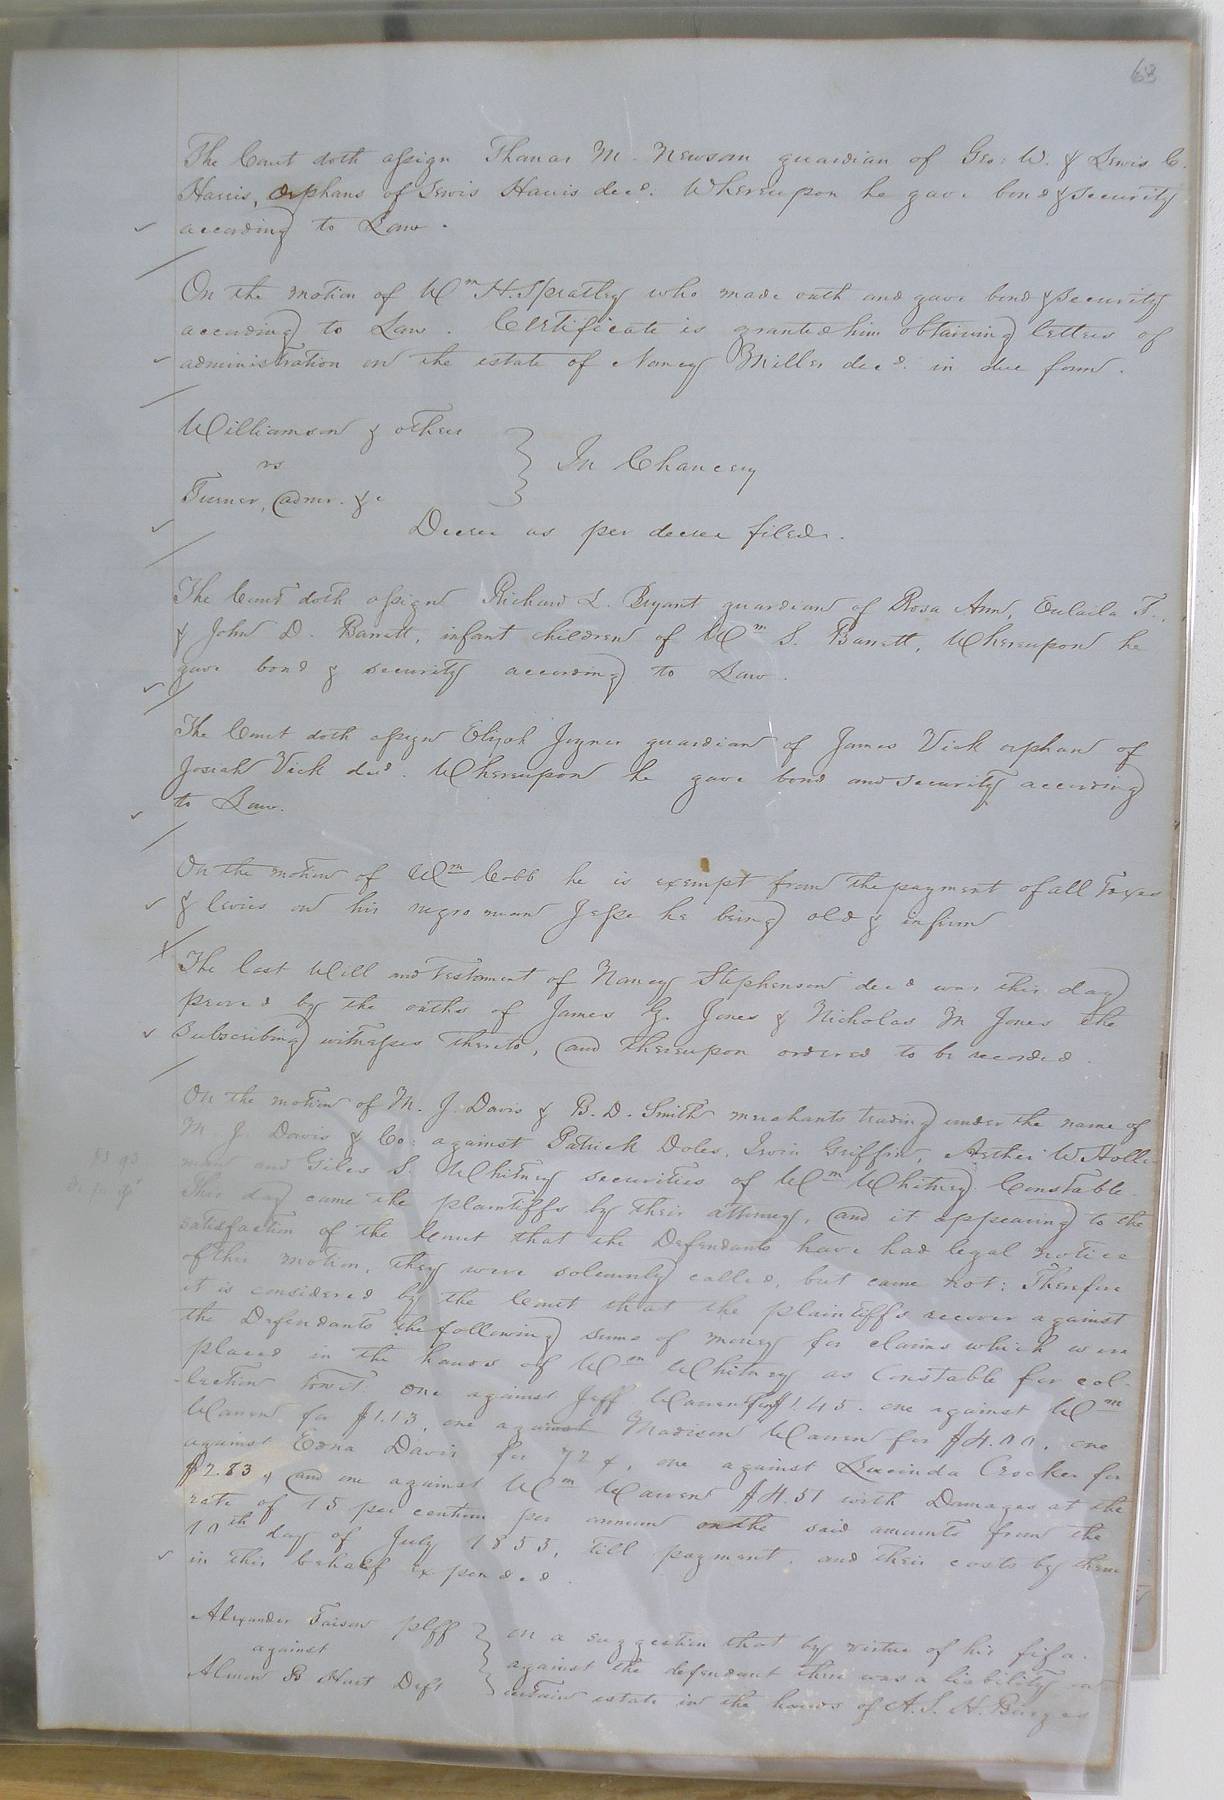 63
The Court doth assign Thomas M. Newsom guardian of Geo: W. & Lewis C.
Harris, orphans of Lewis Harris decd. Whereupon he gave bond & security
according to Law.
On the motion of Wm H. Spratley who made oath and gave bond & security
according to Law. Certificate is granted him obtaining letters of
administration on the estate of Nancy Miller decd. in due form.
Williamson & others
vs
Turner, admr. &c
In Chancery
Decree as per decree filed.
The Court doth assign Richard L. Bryant guardian of Rosa Ann, Eulaila T.,
& John D. Barrett, infant children of Wm S. Barrett, Whereupon he
gave bond & security according to Law.
The Court doth assign Elijah Joyner guardian of James Vick orphan of
Josiah Vick decd. Whereupon he gave bond and security according
to Law.
On the motion of Wm Cobb he is exempt from the payment of all Taxes
& levies on his negro man Jesse he being old & infirm
The last Will and Testament of Nancy Stephenson decd was this day
proved by the oaths of James G. Jones & Nicholas M Jones the
subscribing witnesses thereto, and thereupon ordered to be recorded.
On the motion of M. J. Davis & B. D. Smith merchants trading under the name of
M. J. Davis & Co: against Patrick Doles, Irvin Griffin, Arther W Holle-
man and Giles S. Whitney securities of Wm Whitney Constable.
This day came the plaintiffs by their attorney, and it appearing to the
satisfaction of the Court that the Defendants have had legal notice
of this motion, they were solemnly called, but came not: Therefore
it is considered by the Court that the plaintiffs recover against
the Defendants the following sums of money for claims which were
placed in the hands of Wm Whitney as Constable for col-
lection towit: one against Jeff Warren for $1.45. one against Wm
Warren for $1.13, one against Madison Warren for $4.00, one
against Edna Davis for 72 ¢, one against Lucinda Crocker for
$2.83, and one against Wm Warren $4.51 with Damages at the
rate of 15 per centum per annum on the said amounts from the
10th day of July 1853, till payment, and their costs by them
in this behalf expended.
Alexander Faison plff
against
Almon B Hart Deft
on a suggestion that by virtue of his fi fa.
against the defendant there was a liability on
certain estate in the hands of A. S. H. Burges